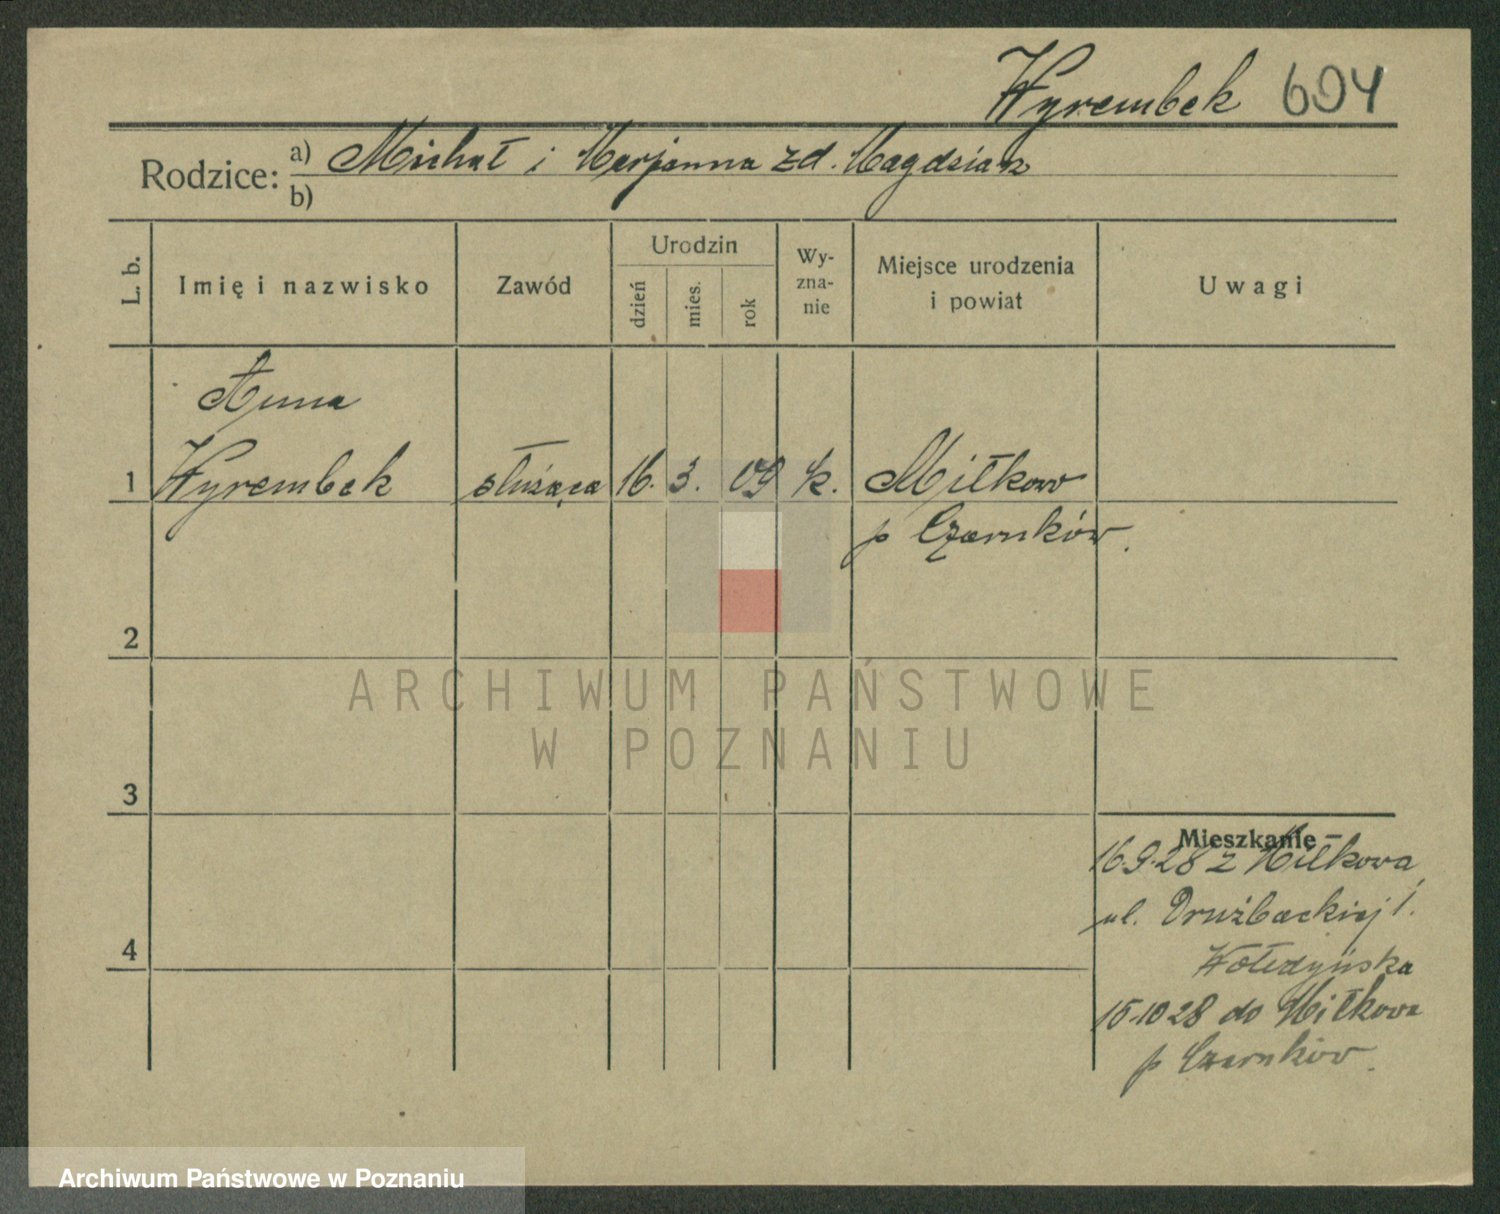 Wyrembek 694
Rodzice: a) Michał i Marjanna zd. Magdziarz
b)
L. b.
Imię i nazwisko
Zawód
Urodzin
dzień
mies.
rok
Wy-
zna-
nie
Miejsce urodzenia
i powiat
Uwagi
Anna
1 Wyrembek służąca 16. 3. 09 k. Miłkowo
p Czarnków.
2
3
4
Mieszkanie
16.9.28 z Miłkowa
ul. Drużbackiej 1.
15.10 28 do Miłkowa
p Czarnków.
ARCHIWUM PAŃSTWOWE
W POZNANIU
Archiwum Państwowe w Poznaniu